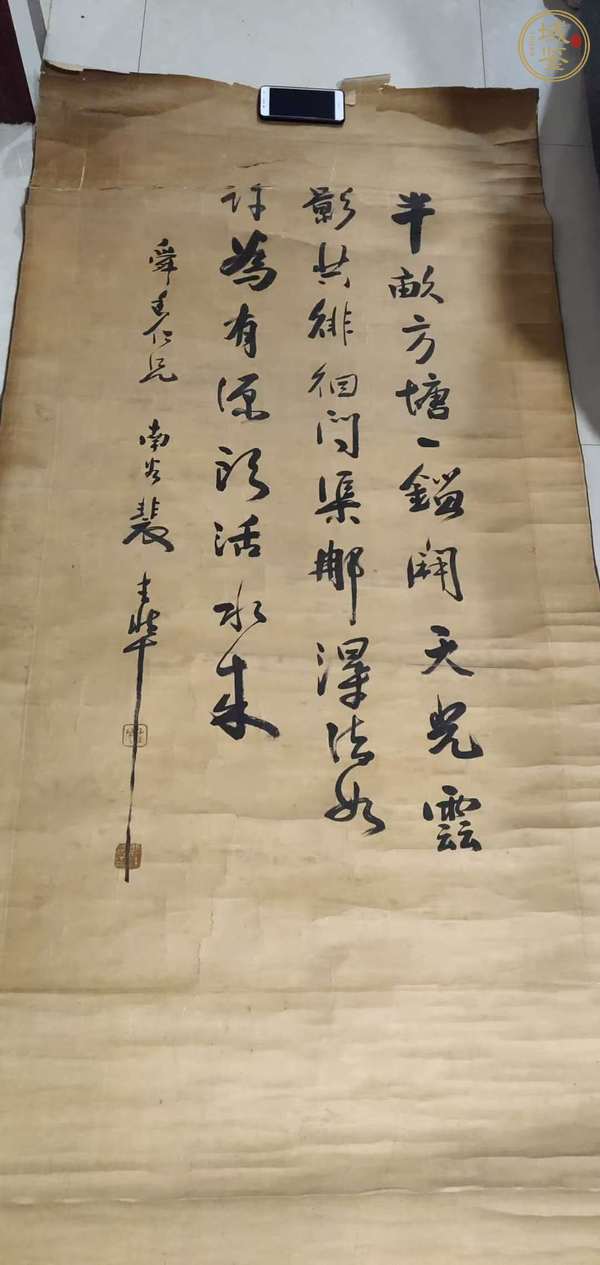 半畝方塘一鑑開天光雲
影共徘徊問渠那得清如
許為有源頭活水來
舜仁兄 南谷
域鉴